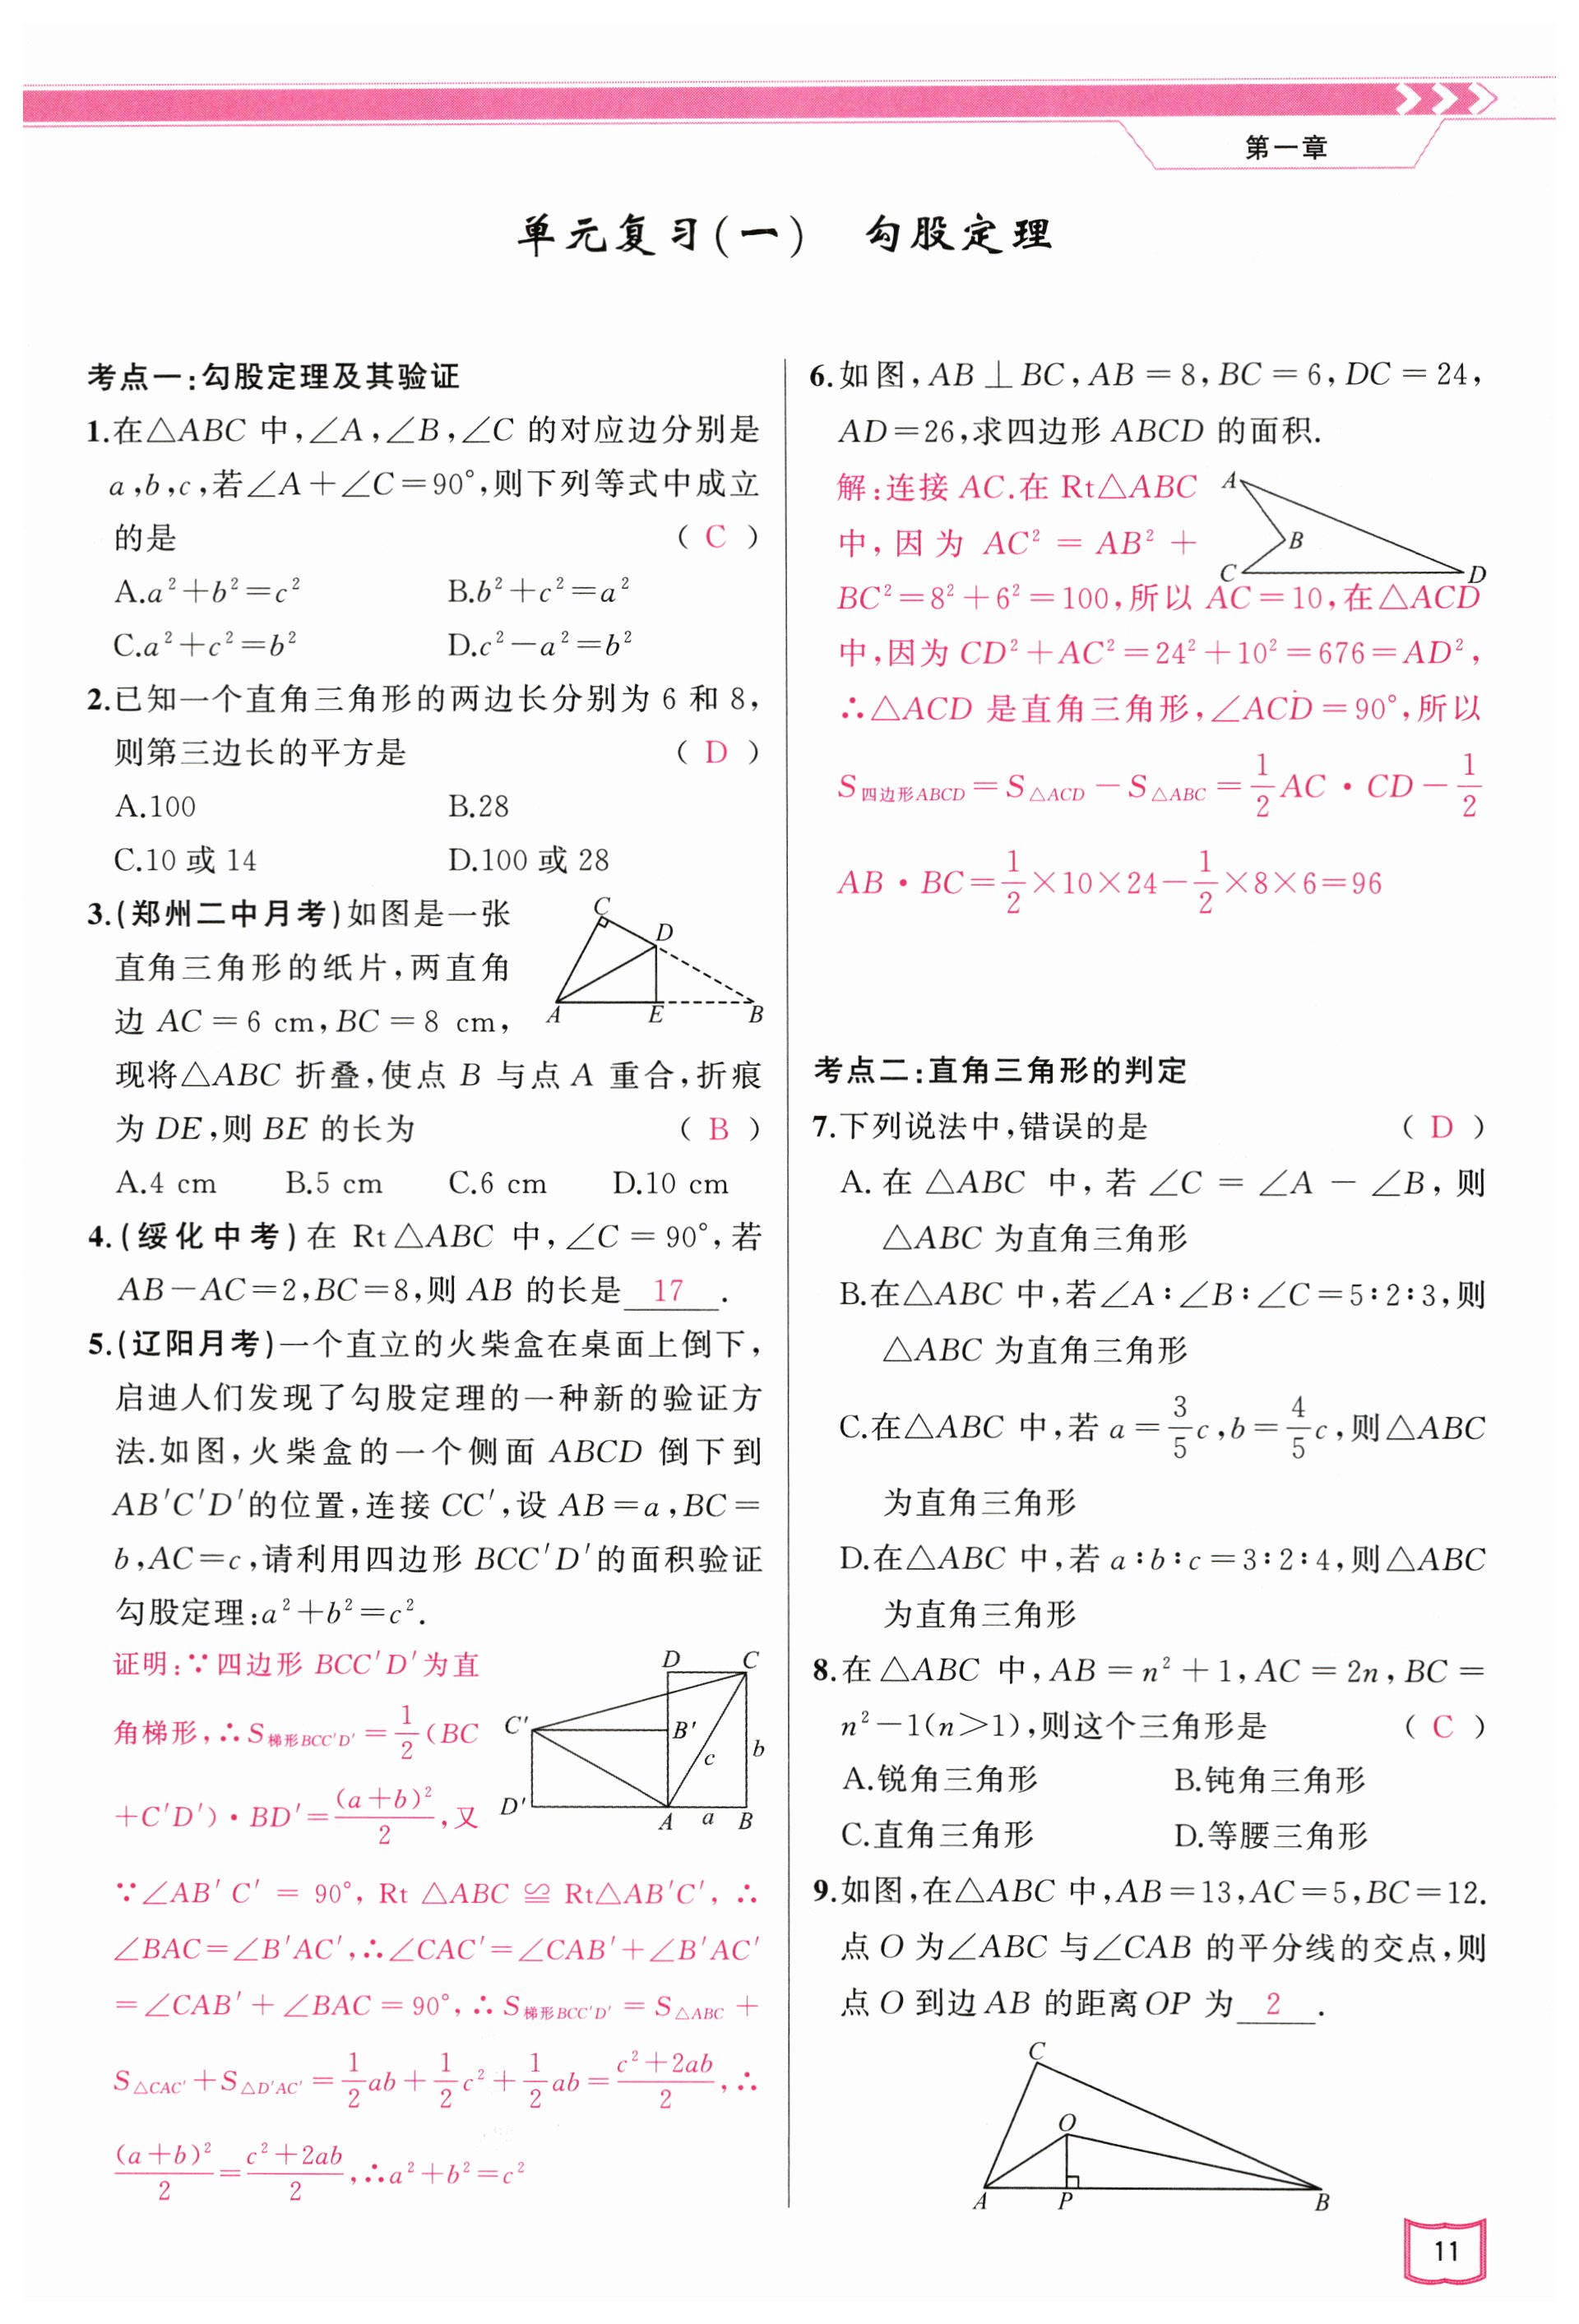 第一章
单元复习(一) 勾股定理
考点一:勾股定理及其验证
1.在△ABC 中,∠A,∠B,∠C 的对应边分别是
a,b,c,若∠A+∠C=90°,则下列等式中成立
的是 ( C )
A.a²+b²=c² B.b²+c²=a²
C.a²+c²=b² D.c²-a²=b²
2.已知一个直角三角形的两边长分别为 6 和 8,
则第三边长的平方是 ( D )
A.100 B.28
C.10 或 14 D.100 或 28
3.(郑州二中月考)如图是一张
直角三角形的纸片,两直角
边 AC=6 cm,BC=8 cm,
现将△ABC 折叠,使点 B 与点 A 重合,折痕
为 DE,则 BE 的长为 ( B )
A.4 cm B.5 cm C.6 cm D.10 cm
C
D
A E B
4.(绥化中考)在 Rt△ABC 中,∠C=90°,若
AB-AC=2,BC=8,则 AB 的长是 17 .
5.(辽阳月考)一个直立的火柴盒在桌面上倒下,
启迪人们发现了勾股定理的一种新的验证方
法.如图,火柴盒的一个侧面 ABCD 倒下到
AB′C′D′的位置,连接 CC′,设 AB=a,BC=
b,AC=c,请利用四边形 BCC′D′的面积验证
勾股定理:a²+b²=c².
证明:∵四边形 BCC′D′为直
角梯形,∴S梯形BCC′D′=1/2(BC
+C′D′)·BD′=(a+b)²/2,又
D C
C′ B′ c b
D′ A a B
∵∠AB′C′=90°,Rt△ABC≌Rt△AB′C′,∴
∠BAC=∠B′AC′,∴∠CAC′=∠CAB′+∠B′AC′
=∠CAB′+∠BAC=90°,∴S梯形BCC′D′=S△ABC+
S△CAC′+S△D′AC′=1/2ab+1/2c²+1/2ab=(c²+2ab)/2,∴
(a+b)²/2=(c²+2ab)/2,∴a²+b²=c²
6.如图,AB⊥BC,AB=8,BC=6,DC=24,
AD=26,求四边形 ABCD 的面积.
解:连接 AC.在 Rt△ABC
中,因为 AC²=AB²+
A
B
C D
BC²=8²+6²=100,所以 AC=10,在△ACD
中,因为 CD²+AC²=24²+10²=676=AD²,
∴△ACD 是直角三角形,∠ACD=90°,所以
S四边形ABCD=S△ACD-S△ABC=1/2AC·CD-1/2
AB·BC=1/2×10×24-1/2×8×6=96
考点二:直角三角形的判定
7.下列说法中,错误的是 ( D )
A.在△ABC 中,若∠C=∠A-∠B,则
△ABC 为直角三角形
B.在△ABC 中,若∠A∶∠B∶∠C=5∶2∶3,则
△ABC 为直角三角形
C.在△ABC 中,若 a=3/5c,b=4/5c,则△ABC
为直角三角形
D.在△ABC 中,若 a∶b∶c=3∶2∶4,则△ABC
为直角三角形
8.在△ABC 中,AB=n²+1,AC=2n,BC=
n²-1(n>1),则这个三角形是 ( C )
A.锐角三角形 B.钝角三角形
C.直角三角形 D.等腰三角形
9.如图,在△ABC 中,AB=13,AC=5,BC=12.
点 O 为∠ABC 与∠CAB 的平分线的交点,则
点 O 到边 AB 的距离 OP 为 2 .
C
O
A P B
11